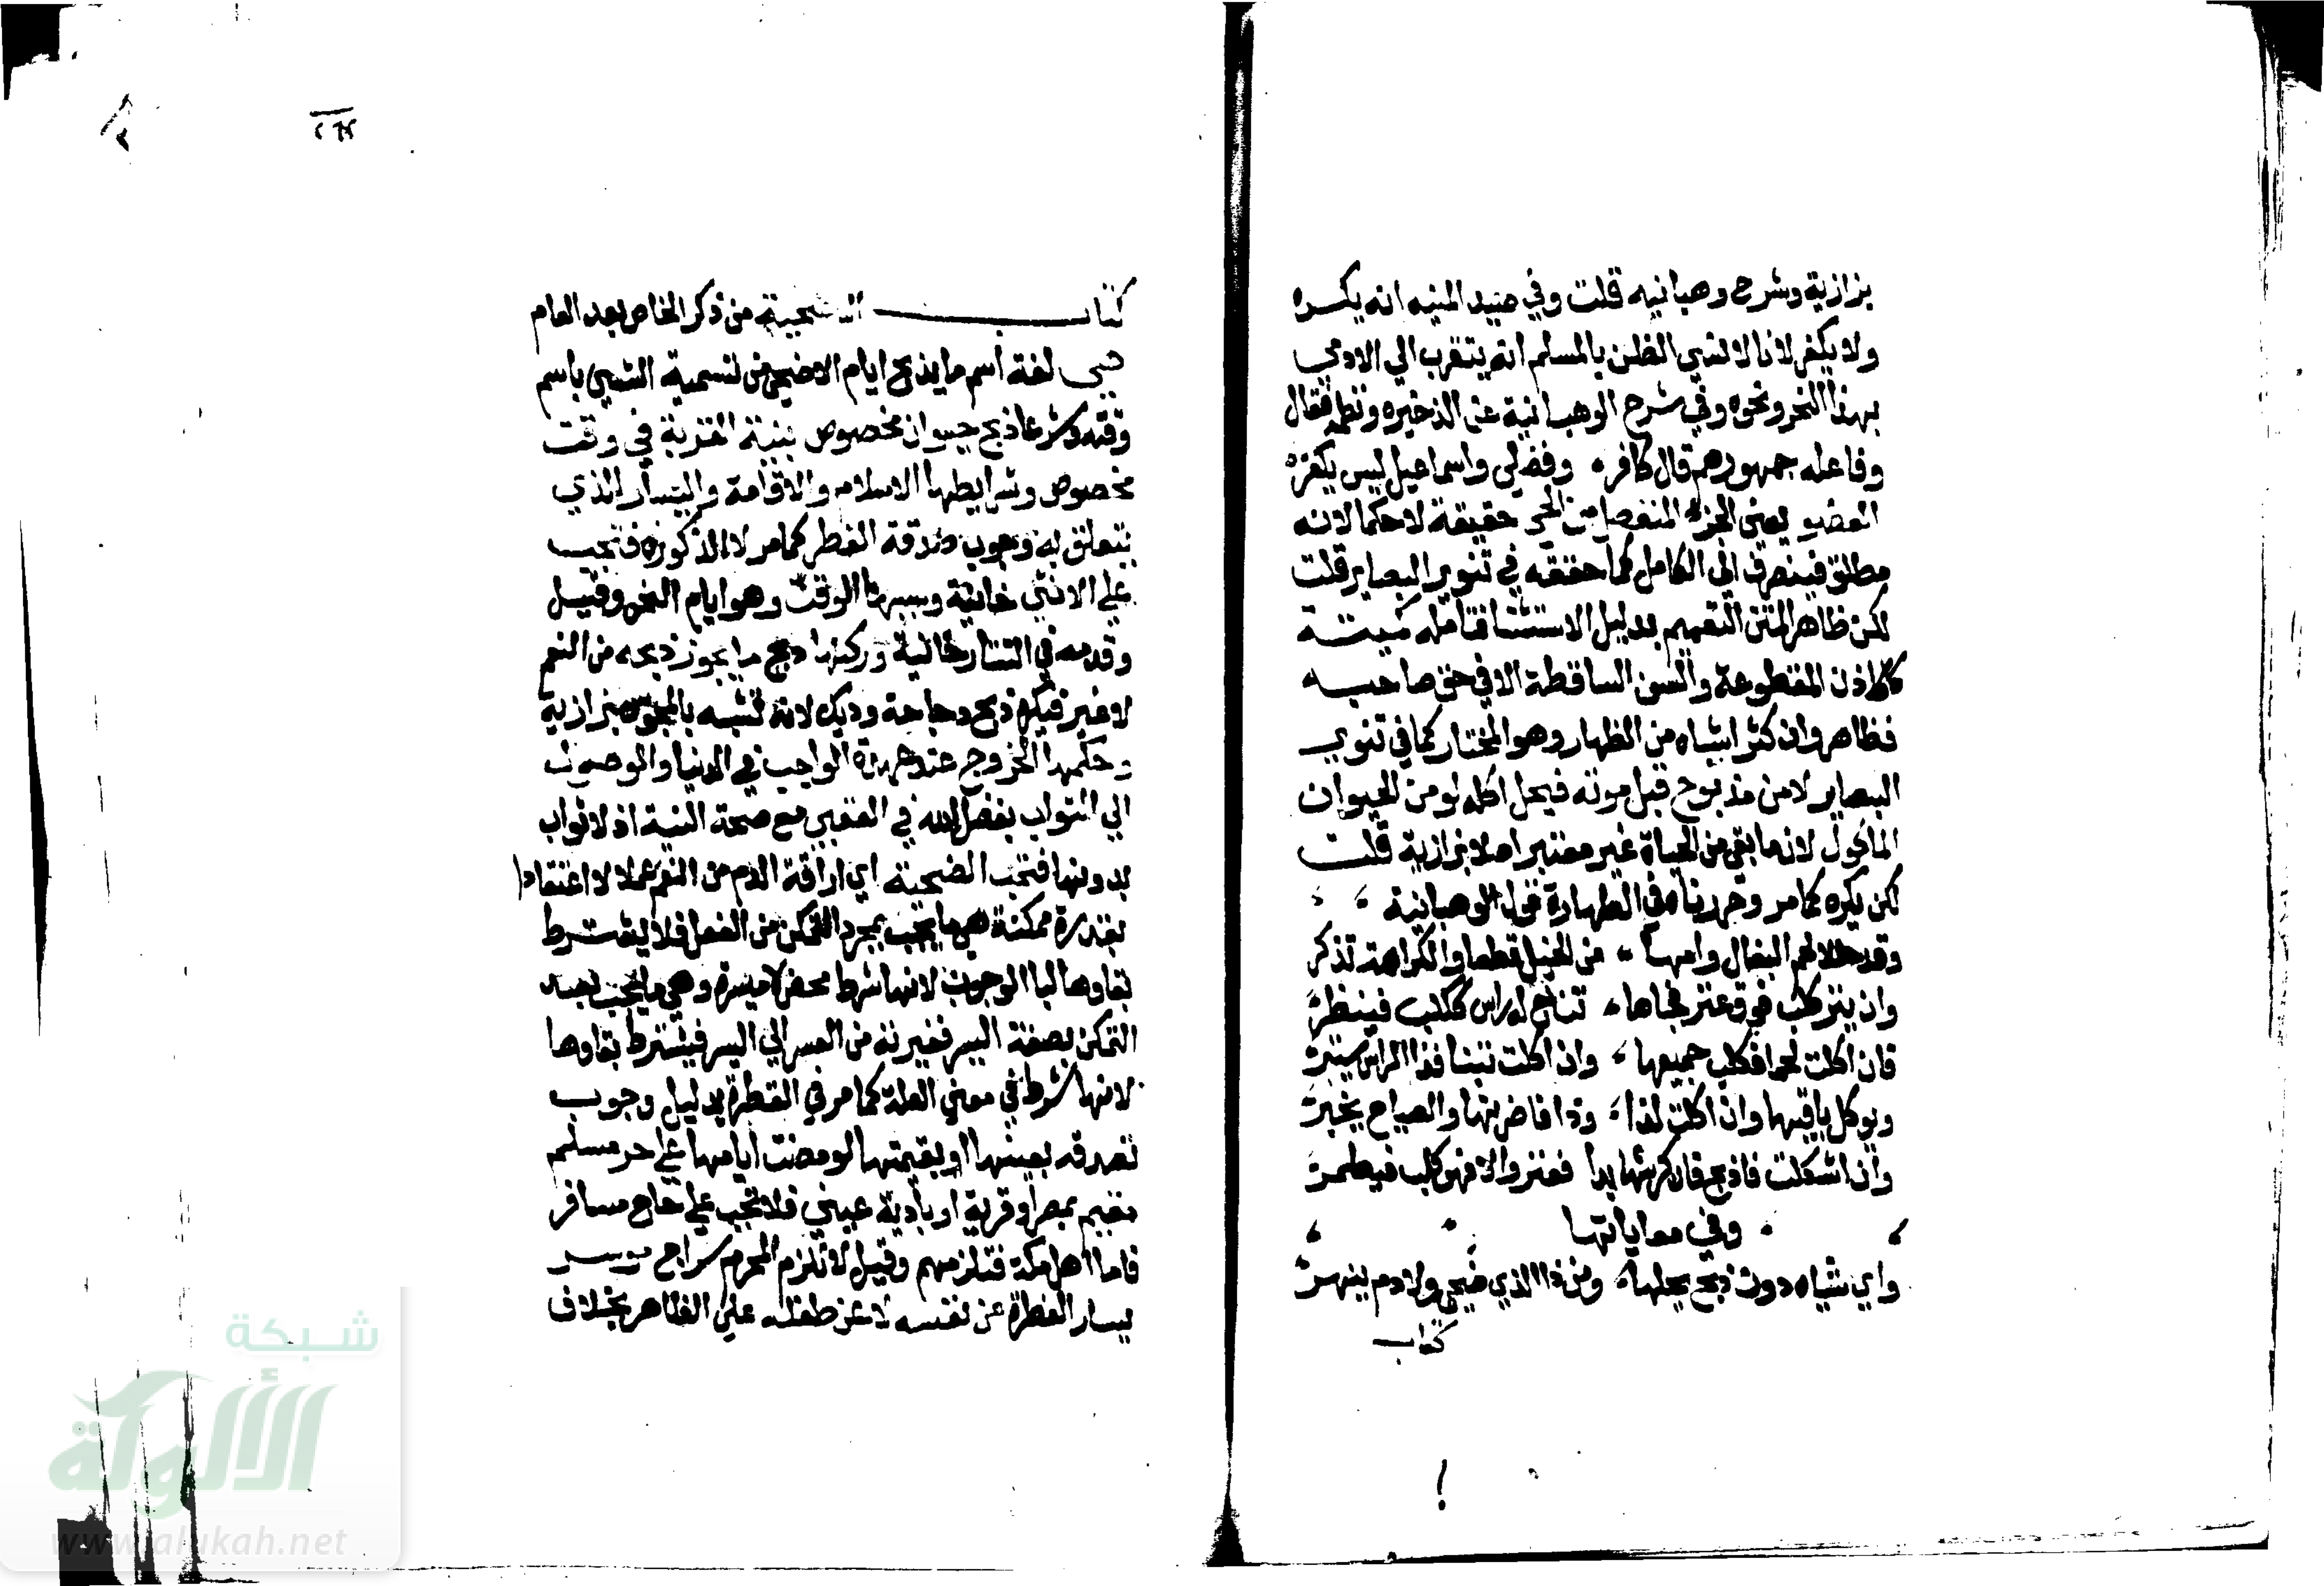 بزازية وشرح وهبانيه قلت وفي صيد المنيه انه يكره
ولا يكفر لانا لا نسي الظن بالمسلم انه يتقرب الي الادمي
بهذا النحر ونحوه وفي شرح الوهبانية عن الذخيره ونظمه فقال
وفاعله جمهورهم قال كافر ٭ وفضلي واسماعيل ليس يكفر
العضو يعني الجزء المنفصل من الحي حقيقة لا حكما لانه
مطلق فينصرف الي الكامل كما حققه في تنوير البصاير قلت
لكن ظاهر المتن التعميم بدليل الاستثنا فتامله كميتة
كالاذن المقطوعة والسن الساقطة الا في حق صاحبه
فظاهر وان كثر اشباه من الطهار وهو المختار كما في تنوير
البصاير لا من مذبوح قبل موته فيحل اكله لو من الحيوان
الماكول لان ما بقي من الحياة غير معتبر اصلا بزازية قلت
لكن يكره كما مر وحررناه في الطهارة قول الوهبانية
وقد حللا لحم البغال وامها ٭ من الخيل قطعا والكراهة تذكر
وان ينز كلب فوق عنز فجاها ٭ نتاج له راس ككلب فينظر
فان اكلت لحما فكلب جميعها ٭ وان اكلت تبنا فذا الراس يبتر
ويوكل باقيها وان اكلت لذا ٭ وذا فاضربنها والصياح يخبر
وان اشكلت فاذبح فان كرشها بدا فعنز والا فهو كلب فيطمر
وفي معاياتها
واي شياه دون ذبح يحلها ٭ ومن ذا الذي ضحي ولا دم ينهر
كتاب
كتاب الاضحية من ذكر الخاص بعد العام
هي لغة اسم ما يذبح ايام الاضحى من تسمية الشي باسم
وقته وشرعا ذبح حيوان مخصوص بنية القربة في وقت
مخصوص وشرايطها الاسلام والاقامة واليسار الذي
يتعلق به وجوب صدقة الفطر كما مر لا الذكورة فتجب
علي الانثي خانية وسببها الوقت وهو ايام النحر وقيل
وقدمه في التتارخانية وركنها ذبح ما يجوز ذبحه من النعم
لا غير فيكره ذبح دجاجة وديك لانه تشبه بالمجوس بزازية
وحكمها الخروج عن عهدة الواجب في الدنيا والوصول
الي الثواب بفضل الله في العقبي مع صحة النية اذ لا ثواب
بدونها فتجب التضحية اي اراقة الدم من النعم عملا لا اعتقادا
بقدرة ممكنة هي ما يجب بمجرد التمكن من الفعل فلا يشترط
بقاوها لبقا الوجوب لانها شرط محض لا ميسرة وهي ما يجب بعد
التمكن بصفة اليسر فغيرته من العسر الي اليسر فيشترط بقاوها
لانها شرط في معني العلة كما مر في الفطرة بدليل وجوب
تصدقه بعينها او بقيمتها لو مضت ايامها علي حر مسلم
مقيم بمصر او قرية او بادية عيني فلا تجب علي حاج مسافر
فاما اهل مكة فتلزمهم وقيل لا تلزم المحرم سراج موسر
يسار الفطرة عن نفسه لا عن طفله علي الظاهر بخلاف
شبكة
الألوكة
www.alukah.net